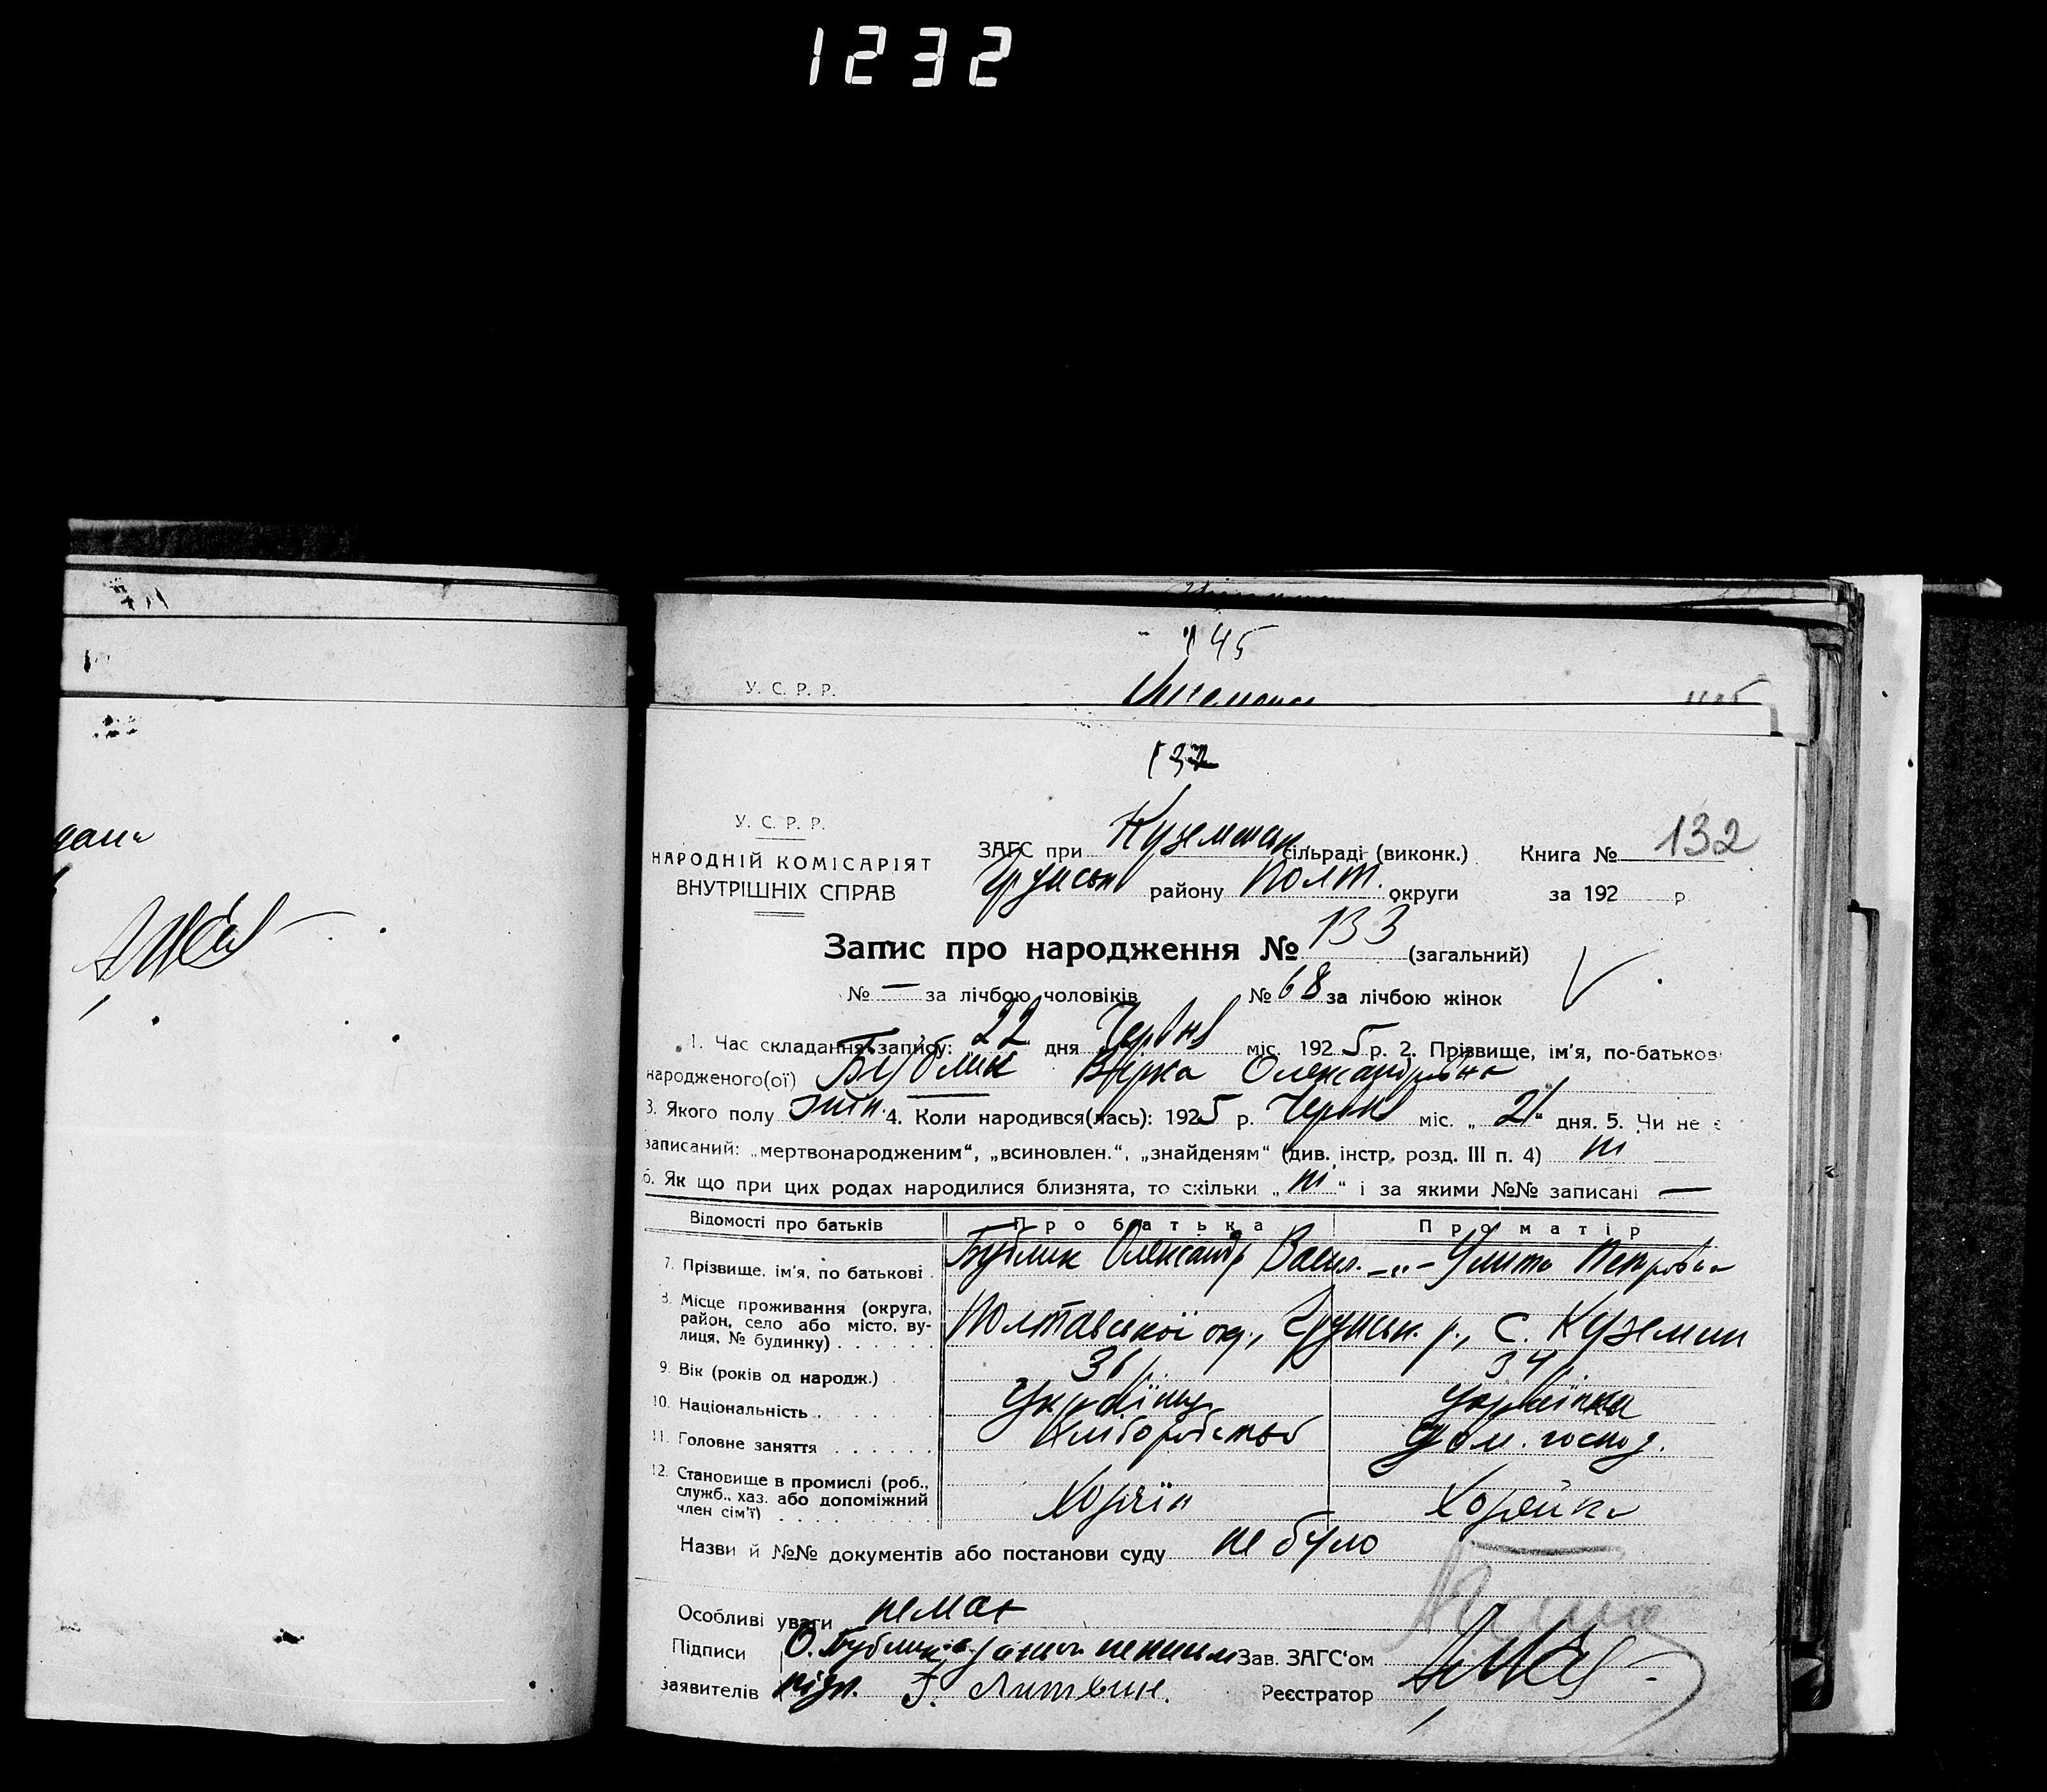 1232
145
У. С. Р. Р.
132
У. С. Р. Р.
НАРОДНІЙ КОМІСАРІЯТ
ВНУТРІШНІХ СПРАВ
ЗАГС при Куземин. сільраді (виконк.) Книга № 132
Грунськ району Полт. округи за 192 р.
Запис про народження № 133 (загальний)
№ — за лічбою чоловіків № 68 за лічбою жінок
1. Час складання запису: 22 дня Червня міс. 1925 р. 2. Прізвище, ім'я, по-батькові
народженого(ої) Бублик Вірка Олександрівна
3. Якого полу жін. 4. Коли народився(лась): 1925 р. Червн міс. „21“ дня. 5. Чи не є
записаний: „мертвонародженим“, „всиновлен.“, „знайденям“ (див. інстр. розд. III п. 4) ні
6. Як що при цих родах народилися близнята, то скільки „ні“ і за якими №№ записані —
Відомості про батьків Про батька Про матір
7. Прізвище, ім'я, по батькові . Бублик Олександр Васил. —„— Улита Петровна
8. Місце проживання (округа,
район, село або місто, ву-
лиця, № будинку) . . . . . . Полтавської окр., Грунськ. р., с. Куземин
9. Вік (років од народж.) 36 34
10. Національність . Українц Українка
11. Головне заняття . . . . . . Хліборобство Дом. господ.
12. Становище в промислі (роб.,
служб., хаз. або допоміжний
член сім'ї) Хозяїн Хозяйка
Назви й №№ документів або постанови суду не було
Особливі уваги немає
Підписи О. Бублик Зав. ЗАГС'ом
заявителів підп. Литвин. Реєстратор